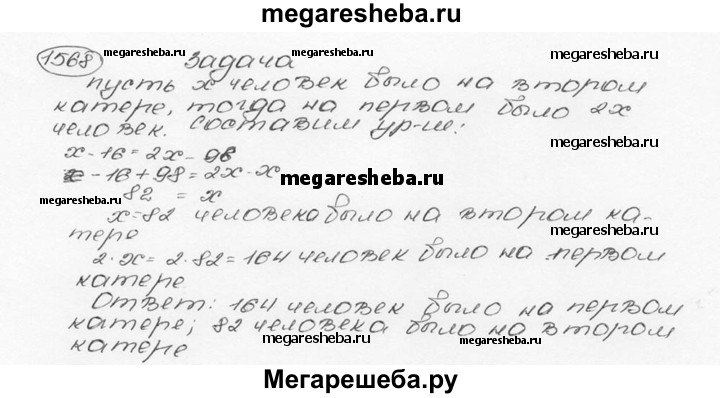 megaresheba.ru
1568 Задача megaresheba.ru
megaresheba.ru
пусть х человек было на втором
катере, тогда на первом было 2х
человек. Составим ур-ие:
х - 16 = 2х - 98
- 16 + 98 = 2х - х
megaresheba.ru megaresheba.ru
82 = х
х = 82 человека было на втором ка-
тере
megaresheba.ru
2·х = 2·82 = 164 человек было на первом
катере
Ответ: 164 человек было на первом
катере; 82 человека было на втором
катере
megaresheba.ru megaresheba.ru
Мегарешеба.ру